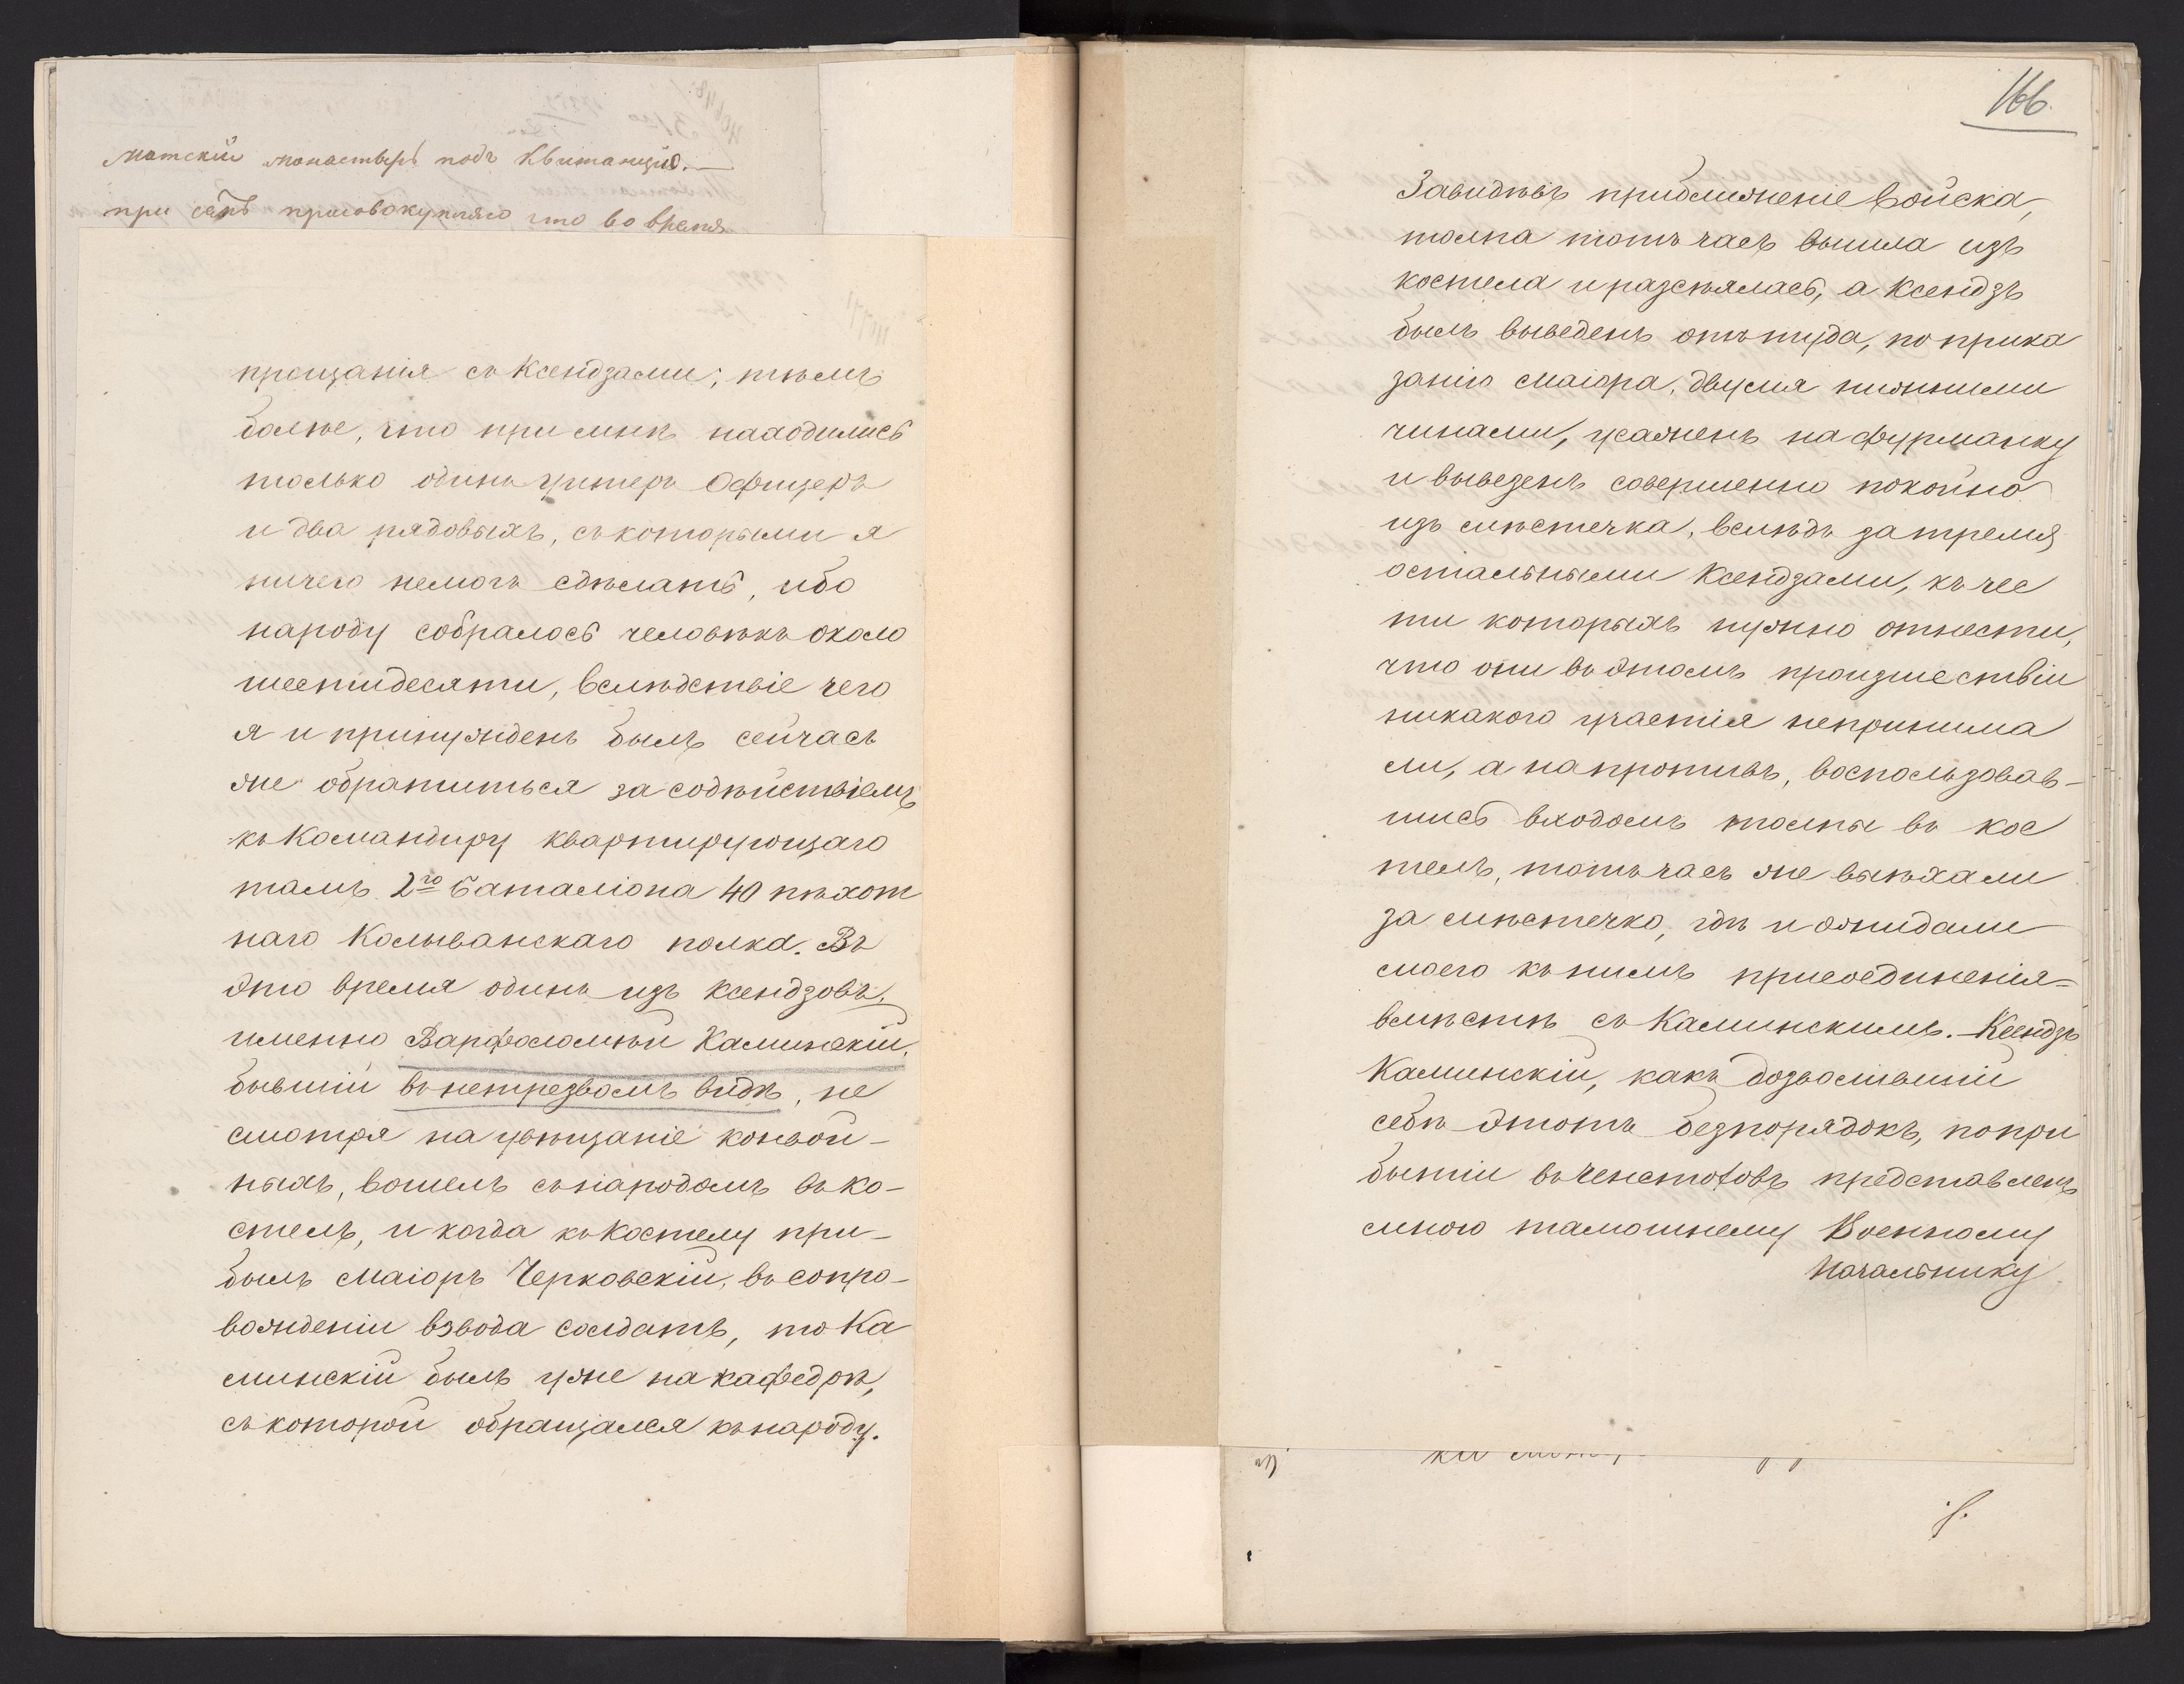 матскій монастырь подъ квитанцію.—
при семъ присовокупляю что во время
прощанія съ Ксендзами; тѣмъ
болѣе, что при мнѣ находились
только одинъ унтеръ Офицеръ
и два рядовыхъ, съ которыми я
ничего немогъ сдѣлать, ибо
народу собралось человѣкъ около
шестидесяти, вслѣдствіе чего
я и принужденъ былъ сейчасъ
же обратиться за содѣйствіемъ
къ Командиру квартирующаго
тамъ 2го баталіона 40 пѣхот
наго Колыванскаго полка. Въ
это время одинъ изъ ксендзовъ,
именно Варфоломѣй Каминскій,
бывшій въ нетрезвомъ видѣ, не
смотря на увѣщаніе конвой-
ныхъ, вошелъ съ народомъ въ ко-
стелъ, и когда къ Костелу при-
былъ Маіоръ Черковскій, въ сопро-
вожденіи взвода солдатъ, то Ка
минскій былъ уже на кафедрѣ,
съ которой обращался къ народу.
166.
Завидѣвъ приближеніе войска,
толпа тотъ часъ вышла изъ
костела и разсѣялась, а Ксендзъ
былъ выведенъ отътуда, по прика
занію Маіора, двумя нижними
чинами, усаженъ на фурманку
и вывезенъ совершенно покойно
изъ мѣстечка, вслѣдъ за тремя
остальными Ксендзами, къ чес
ти которыхъ нужно отнести,
что они въ этомъ произшествіи
никакого участія непринима
ли, а напротивъ, воспользовав-
шись входомъ толпы въ кос
телъ, тотъ часъ же выѣхали
за мѣстечко, гдѣ и ожидали
моего къ нимъ присоединенія-
вмѣстѣ съ Каминскимъ. - Ксендзъ
Каминскій, какъ дозволившій
себѣ этотъ безпорядокъ, по при
бытіи въ Ченстоховъ представленъ
мною тамошнему Военному
Начальнику